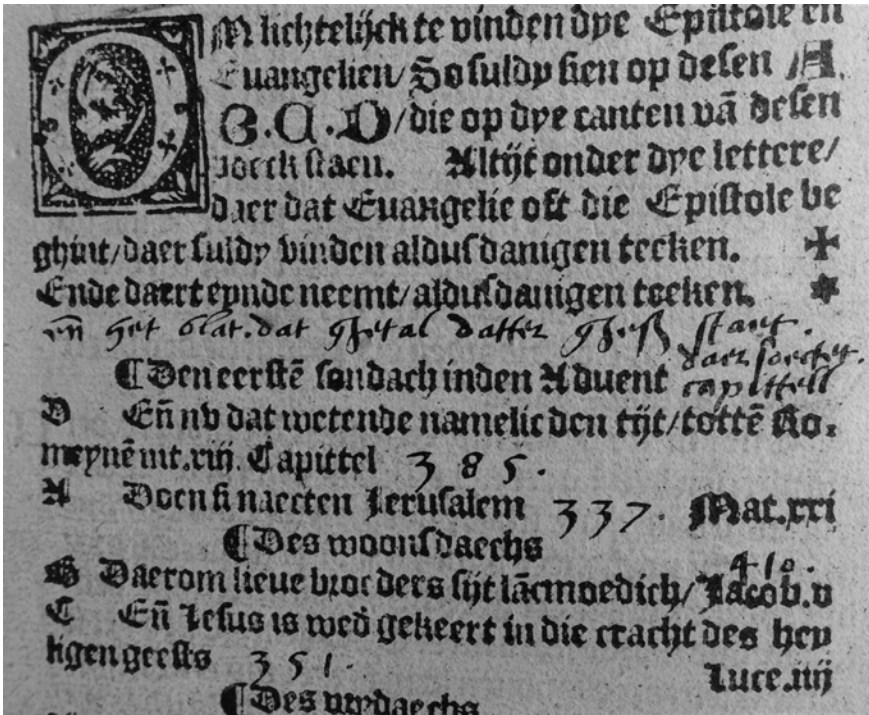 OM lichtelijck te vinden dye Epistole en
Euangelien/ So suldy sien op desen /A.
B.C.D/die op dye canten vā desen
boeck staen. Altijt onder dye lettere/
daer dat Euangelie oft die Epistole be
ghint/daer suldy vinden aldusdanigen teeken. ✠
Ende daert eynde neemt/aldusdanigen teeken. *
en het blat. dat ghetal datter staet.
daer
capittell
¶ Den eerstē sondach inden Aduent
D Eñ nv dat wetende namelic den tijt/tottē Ro-
meynē int.xiij. Capittel 385.
A Doen si naecten Jerusalem 337. Mat.xxi
¶ Des woonsdaechs
410.
B Daerom lieue broeders sijt lācmoedich/Jacob.v
C Eñ Jesus is wed gekeert in die cracht des hey
ligen geests 351. Luce.iiij
¶ Des vrydaechs